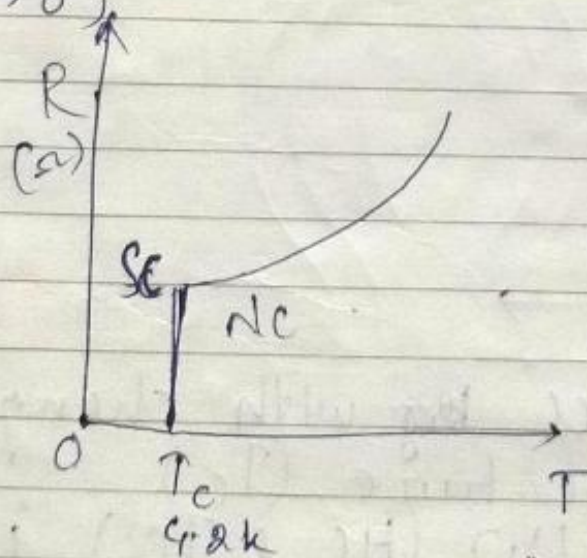 R
(Ω)
SC
NC
O
Tc
4.2k
T